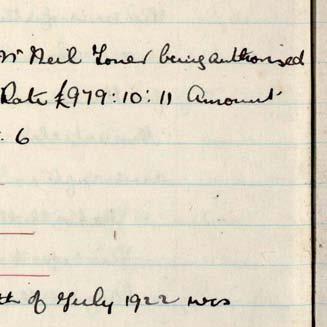 Mr Neil Toner being authorised
Rate £979:10:11 Amount
: 6
th of July 1922 was